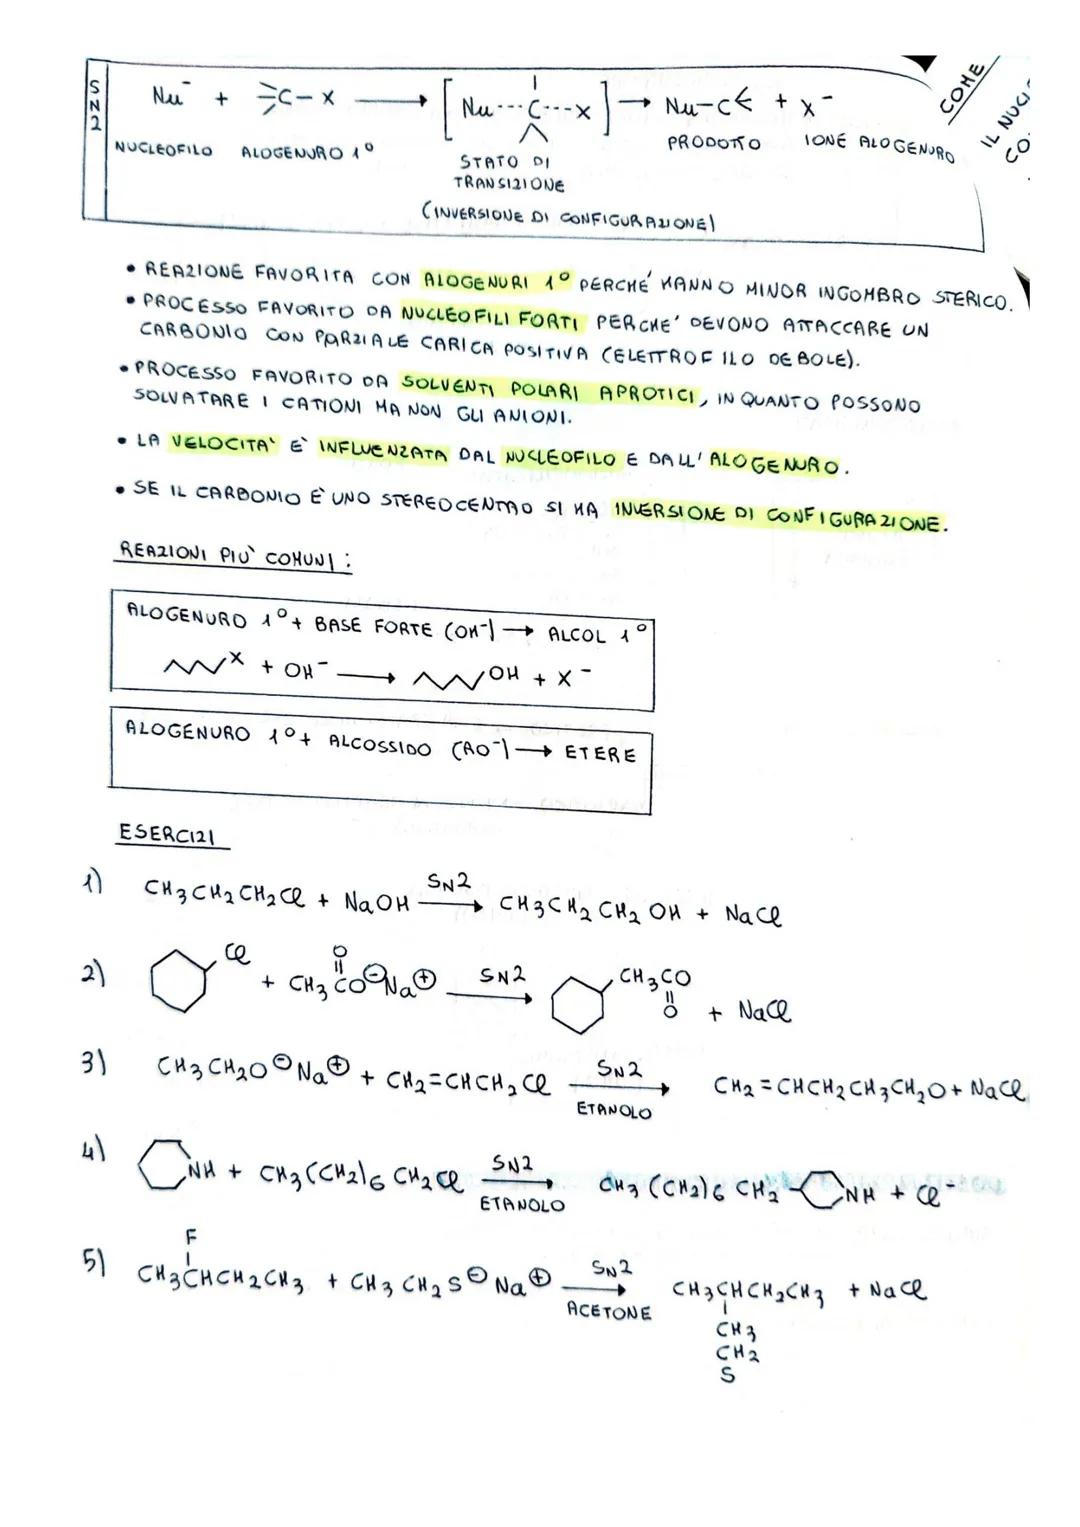 SN2
Nu⁻ + C-X → [Nu---C---X] → Nu-C + X⁻
NUCLEOFILO ALOGENURO 1° STATO DI TRANSIZIONE PRODOTTO IONE ALOGENURO
(INVERSIONE DI CONFIGURAZIONE)
COME
IL
• REAZIONE FAVORITA CON ALOGENURI 1° PERCHÉ HANNO MINOR INGOMBRO STERICO.
• PROCESSO FAVORITO DA NUCLEOFILI FORTI PERCHE' DEVONO ATTACCARE UN
CARBONIO CON PARZIALE CARICA POSITIVA (ELETTROFILO DEBOLE).
• PROCESSO FAVORITO DA SOLVENTI POLARI APROTICI, IN QUANTO POSSONO
SOLVATARE I CATIONI MA NON GLI ANIONI.
• LA VELOCITA' E' INFLUENZATA DAL NUCLEOFILO E DALL'ALOGENURO.
• SE IL CARBONIO È UNO STEREOCENTRO SI HA INVERSIONE DI CONFIGURAZIONE.
REAZIONI PIU' COMUNI:
ALOGENURO 1° + BASE FORTE (OH⁻) → ALCOL 1°
X + OH⁻ → OH + X⁻
ALOGENURO 1° + ALCOSSIDO (RO⁻) → ETERE
ESERCIZI
1) CH3CH2CH2Cl + NaOH SN2 → CH3CH2CH2OH + NaCl
2) Cl + CH3CO⊖Na⊕ SN2 → CH3CO + NaCl
O O
3) CH3CH2O⊖Na⊕ + CH2=CHCH2Cl SN2 → CH2=CHCH2CH3CH2O + NaCl
ETANOLO
4) NH + CH3(CH2)6CH2Cl SN2 → CH3(CH2)6CH2 NH + Cl⁻
ETANOLO
F
5) CH3CHCH2CH3 + CH3CH2S⊖Na⊕ SN2 → CH3CHCH2CH3 + NaCl
ACETONE
CH3
CH2
S